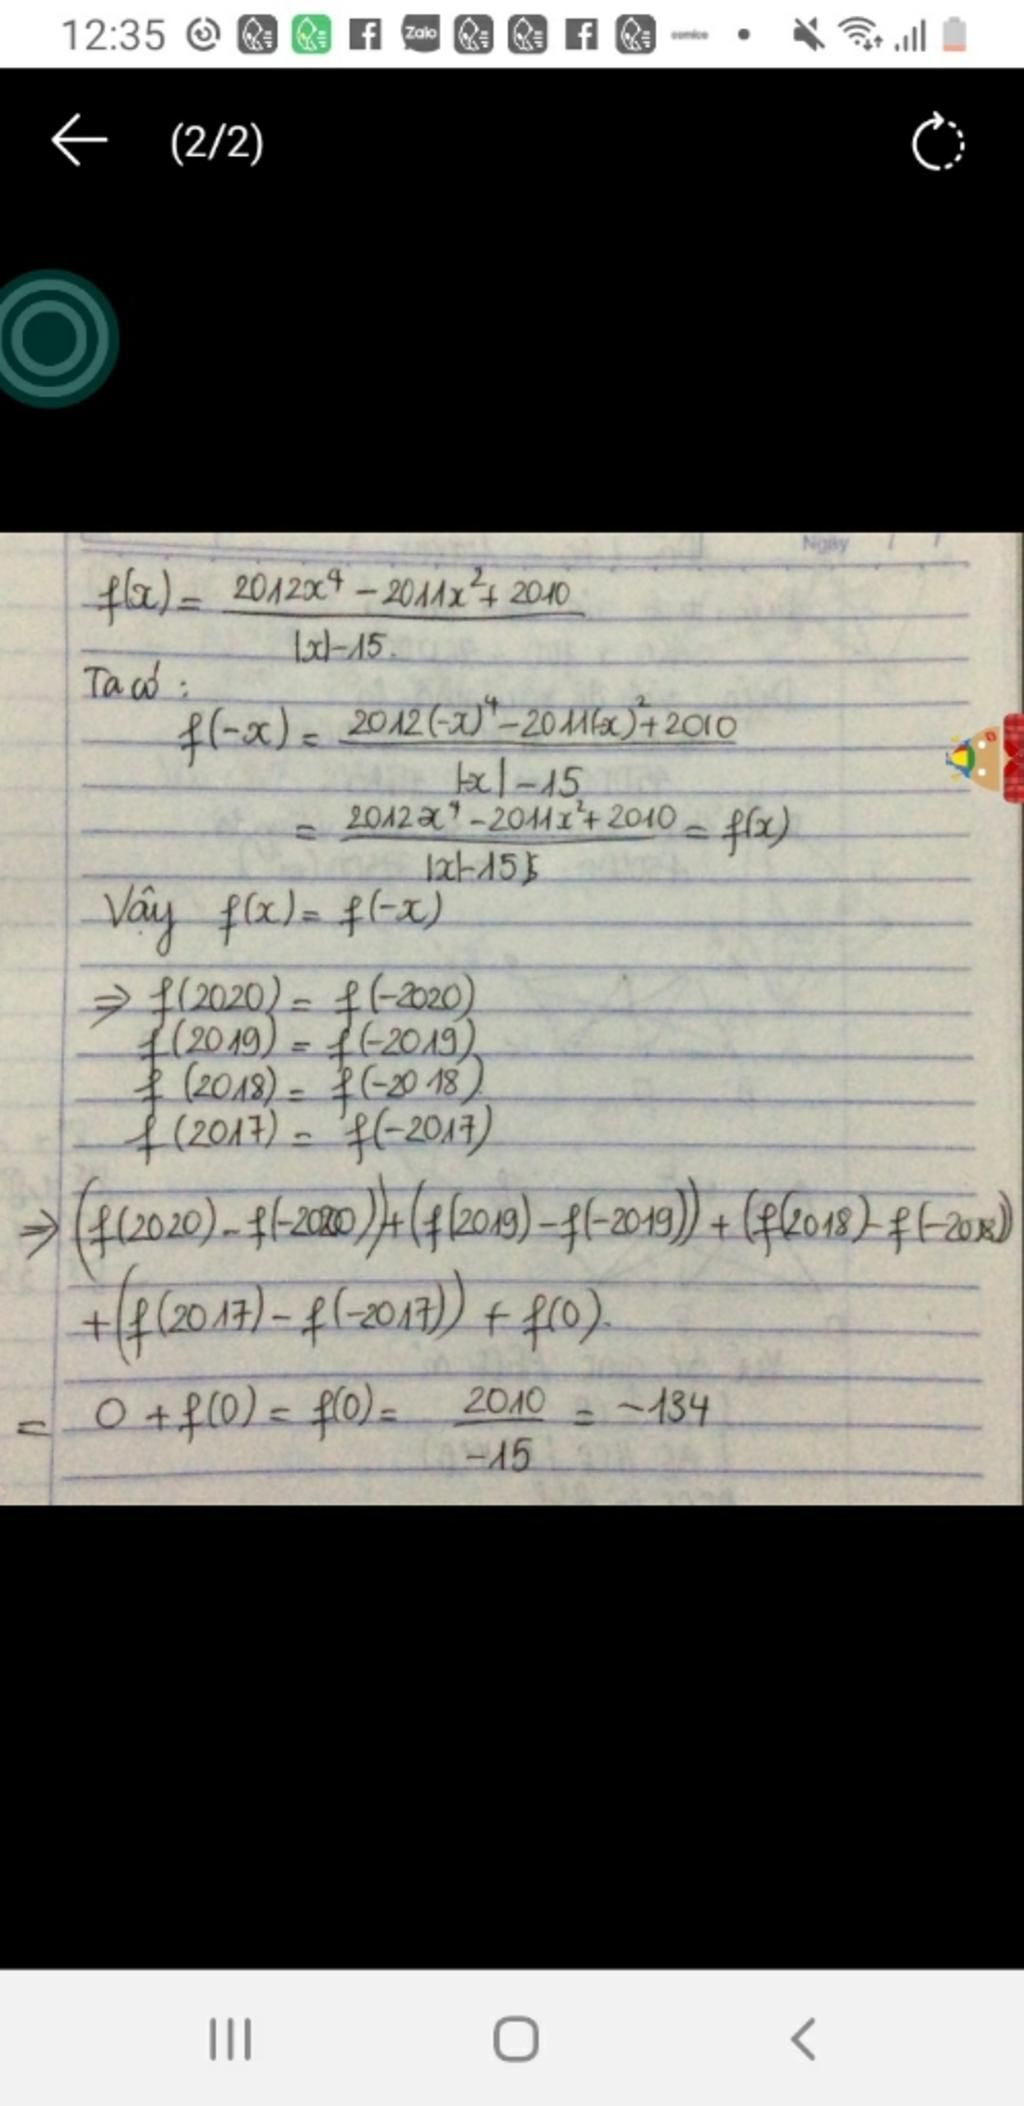 12:35
Zalo
(2/2)
Ngày / /
f(x) = 2012x⁴ - 2011x² + 2010
|x| - 15.
Ta có :
f(-x) = 2012(-x)⁴ - 2011(-x)² + 2010
|-x| - 15
= 2012x⁴ - 2011x² + 2010 = f(x)
|x| - 15
Vậy f(x) = f(-x)
⇒ f(2020) = f(-2020)
f(2019) = f(-2019)
f(2018) = f(-2018)
f(2017) = f(-2017)
⇒ (f(2020) - f(-2020)) + (f(2019) - f(-2019)) + (f(2018) - f(-2018))
+ (f(2017) - f(-2017)) + f(0).
= 0 + f(0) = f(0) = 2010 = -134
-15